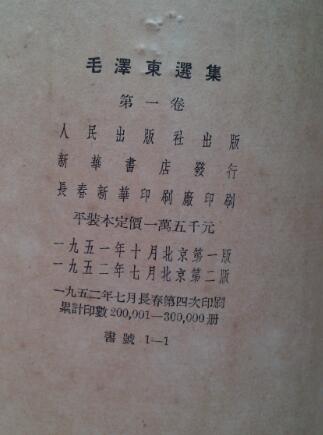 毛澤東選集
第一卷
人民出版社出版
新華書店發行
長春新華印刷廠印刷
平裝本定價一萬五千元
一九五一年十月北京第一版
一九五二年七月北京第二版
一九五二年七月長春第四次印刷
累計印數200,001—300,000册
書號1—1